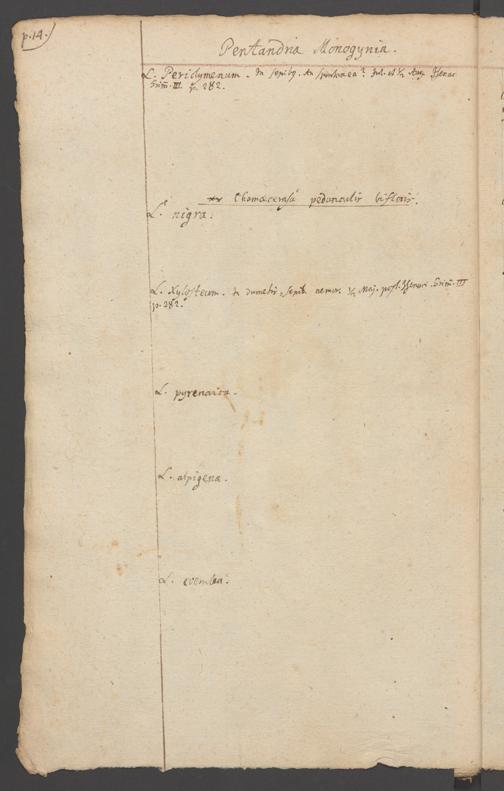 p.14.
Pentandria Monogynia.
L. Periclymenum. In sepib9. Jul. et Aug.
Erim. III p. 282.
Chamaecerasa pedunculis bifloris.
L. nigra.
L. Xylosteum. In dumetis, sepib. nemor. Maj. Erim. III
p. 282.
L. pyrenaica.
L. alpigena.
L. coerulea.